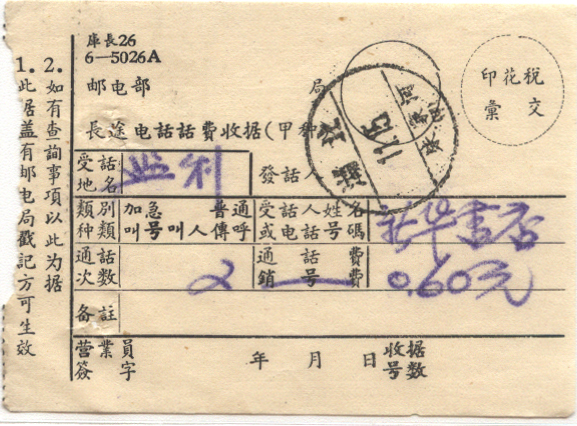 庫長26
6—5026A
邮电部 局
印花税
彙文
長途电話話費收据(甲種)
受話地名 监利 發話人
類別種類 加急 普通 叫号 叫人 傳呼 受話人姓名或电話号碼 新华書店
通話次数 2 通話費銷号費 0.60元
备註
营業員签字 年 月 日 收据号数
1. 此据盖有邮电局戳記方可生效
2. 如有查詢事項以此为据
湖北
11.15